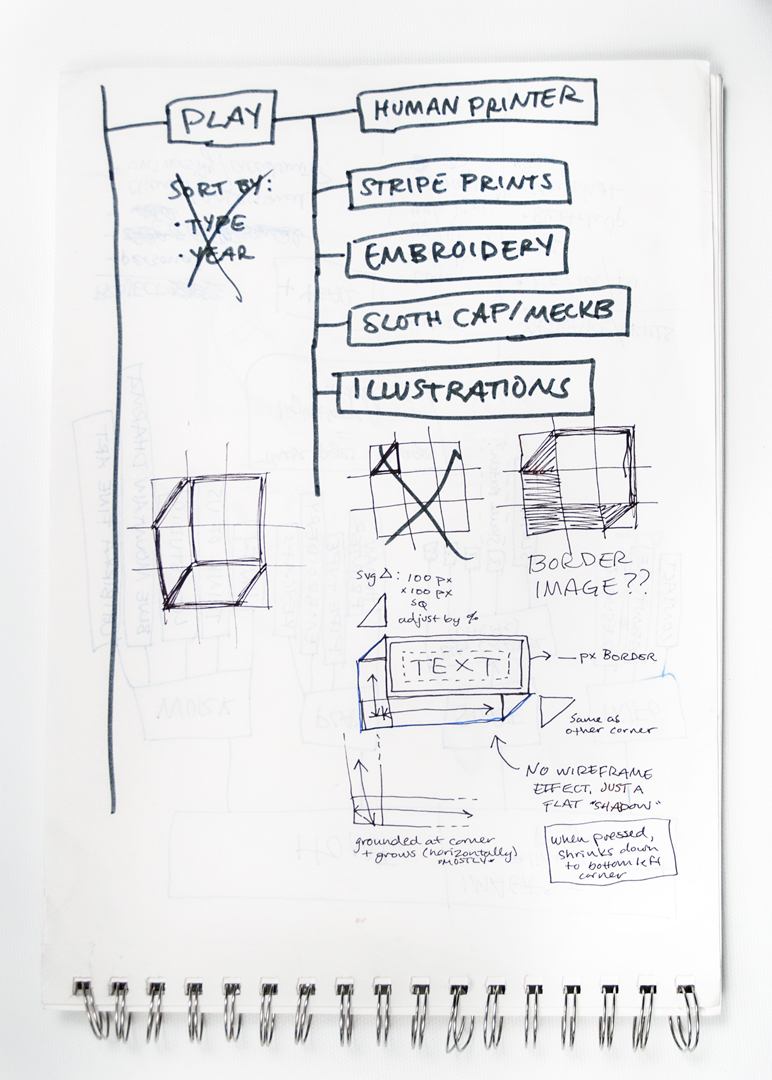 PLAY
HUMAN PRINTER
SORT BY:
• TYPE
• YEAR
STRIPE PRINTS
EMBROIDERY
SLOTH CAP/MECKB
ILLUSTRATIONS
BORDER
IMAGE??
svg △: 100 px
x 100 px
SQ
adjust by %
TEXT
px BORDER
Same as
other corner
NO WIREFRAME
EFFECT, JUST A
FLAT "SHADOW"
grounded at corner
+ grows (horizontally)
*MOSTLY*
when pressed,
shrinks down
to bottom left
corner